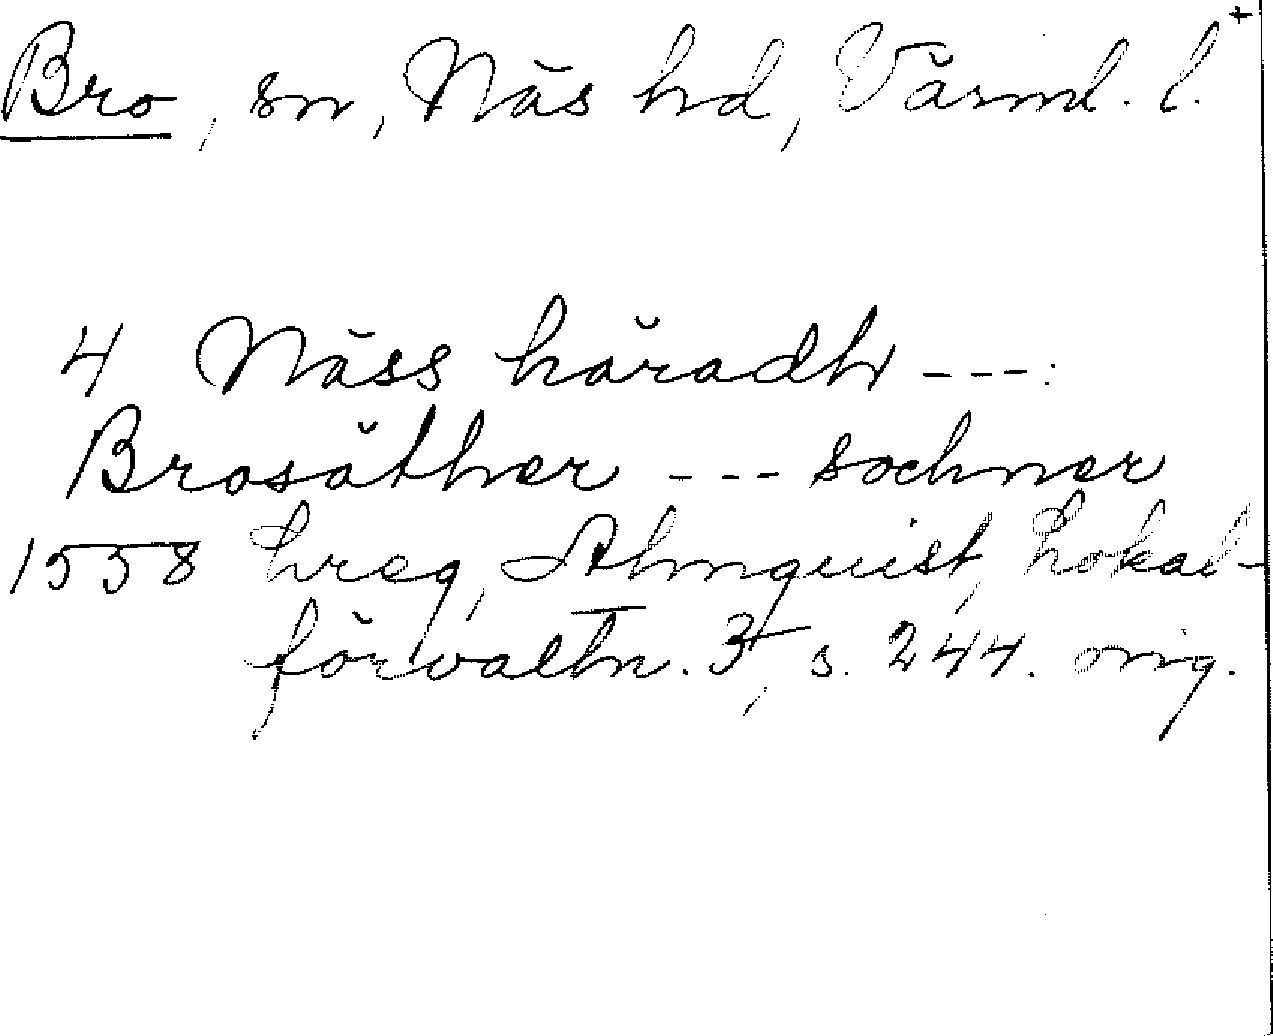 +
Bro, sn, Näs hd, Värml. l.
4 Näss häradh ---:
Brosäther --- sochner
1558 hreg, Almquist, Lokal-
förvaltn. 3, s. 244. orig.